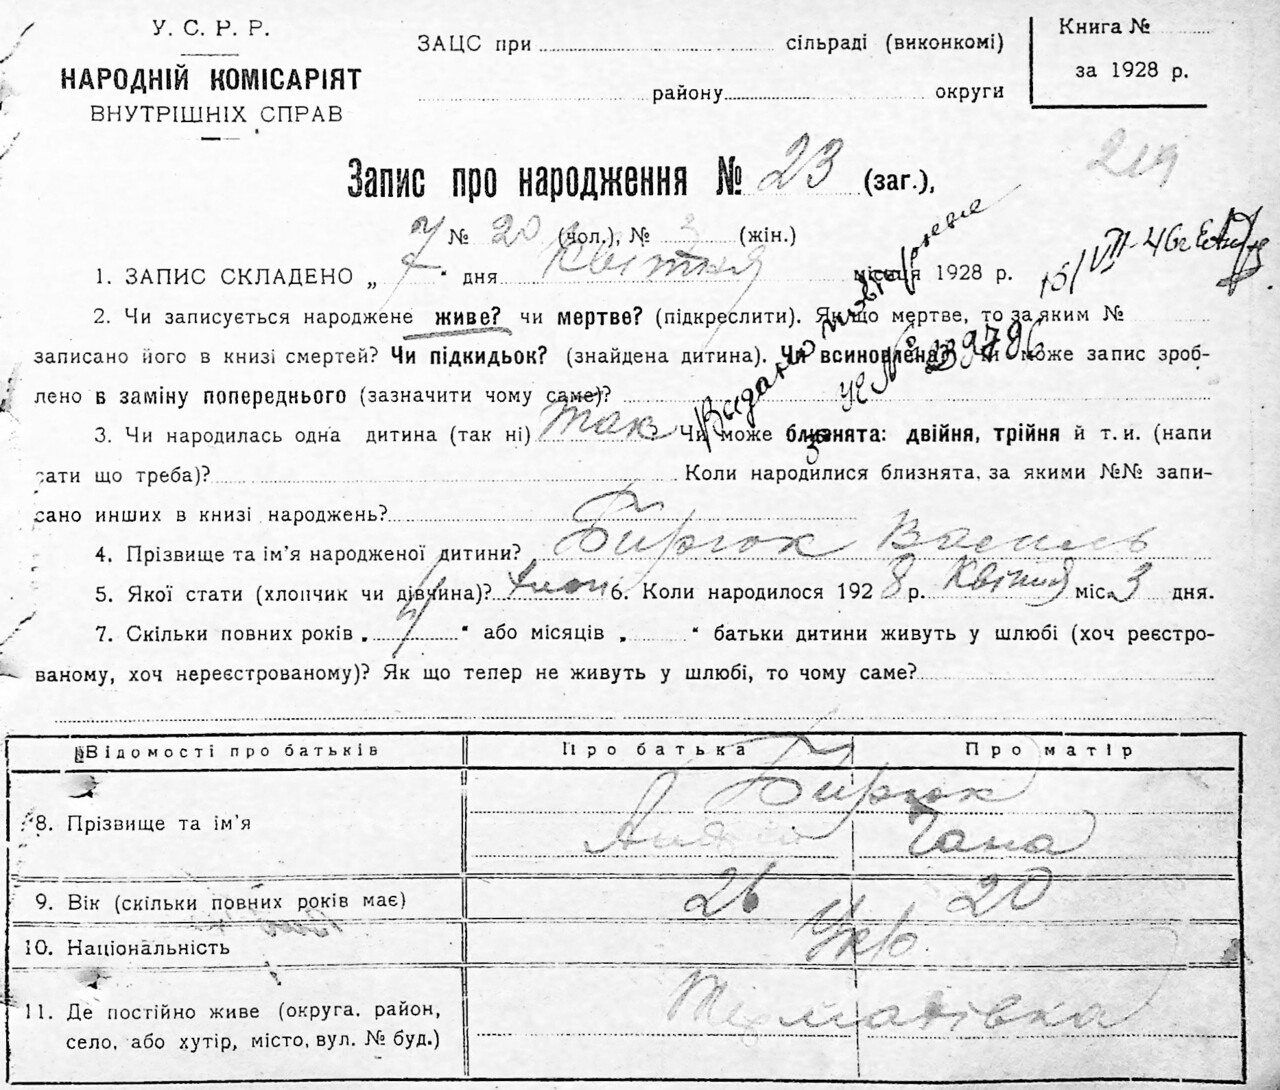 У. С. Р. Р.
НАРОДНІЙ КОМІСАРІЯТ
ВНУТРІШНІХ СПРАВ
ЗАЦС при сільраді (виконкомі)
району округи
Книга №
за 1928 р.
219
Запис про народження № 23 (заг.),
№ 20 (чол.), № (жін.)
1. ЗАПИС СКЛАДЕНО „ 7 “ дня Квітня місяця 1928 р.
15/VII-46г
2. Чи записується народжене живе? чи мертве? (підкреслити). Як що мертве, то за яким №
записано його в книзі смертей? Чи підкидьок? (знайдена дитина). Чи всиновлена? Чи може запис зроб-
лено в заміну попереднього (зазначити чому саме)?
Выдано повторное
3. Чи народилась одна дитина (так ні) Так Чи може близнята: двійня, трійня й т. и. (напи
сати що треба)? Коли народилися близнята, за якими №№ запи-
сано инших в книзі народжень?
4. Прізвище та ім’я народженої дитини? Бирюк Василь
5. Якої стати (хлопчик чи дівчина)? 6. Коли народилося 1928 р. Квітня міс. 3 дня.
7. Скільки повних років „ “ або місяців „ “ батьки дитини живуть у шлюбі (хоч реєстро-
ваному, хоч нереєстрованому)? Як що тепер не живуть у шлюбі, то чому саме?
Відомості про батьків Про батька Про матір
Бирюк
8. Прізвище та ім’я Андрій Гана
9. Вік (скільки повних років має) 26 20
10. Національність Укр.
11. Де постійно живе (округа, район,
село, або хутір, місто, вул. № буд.)